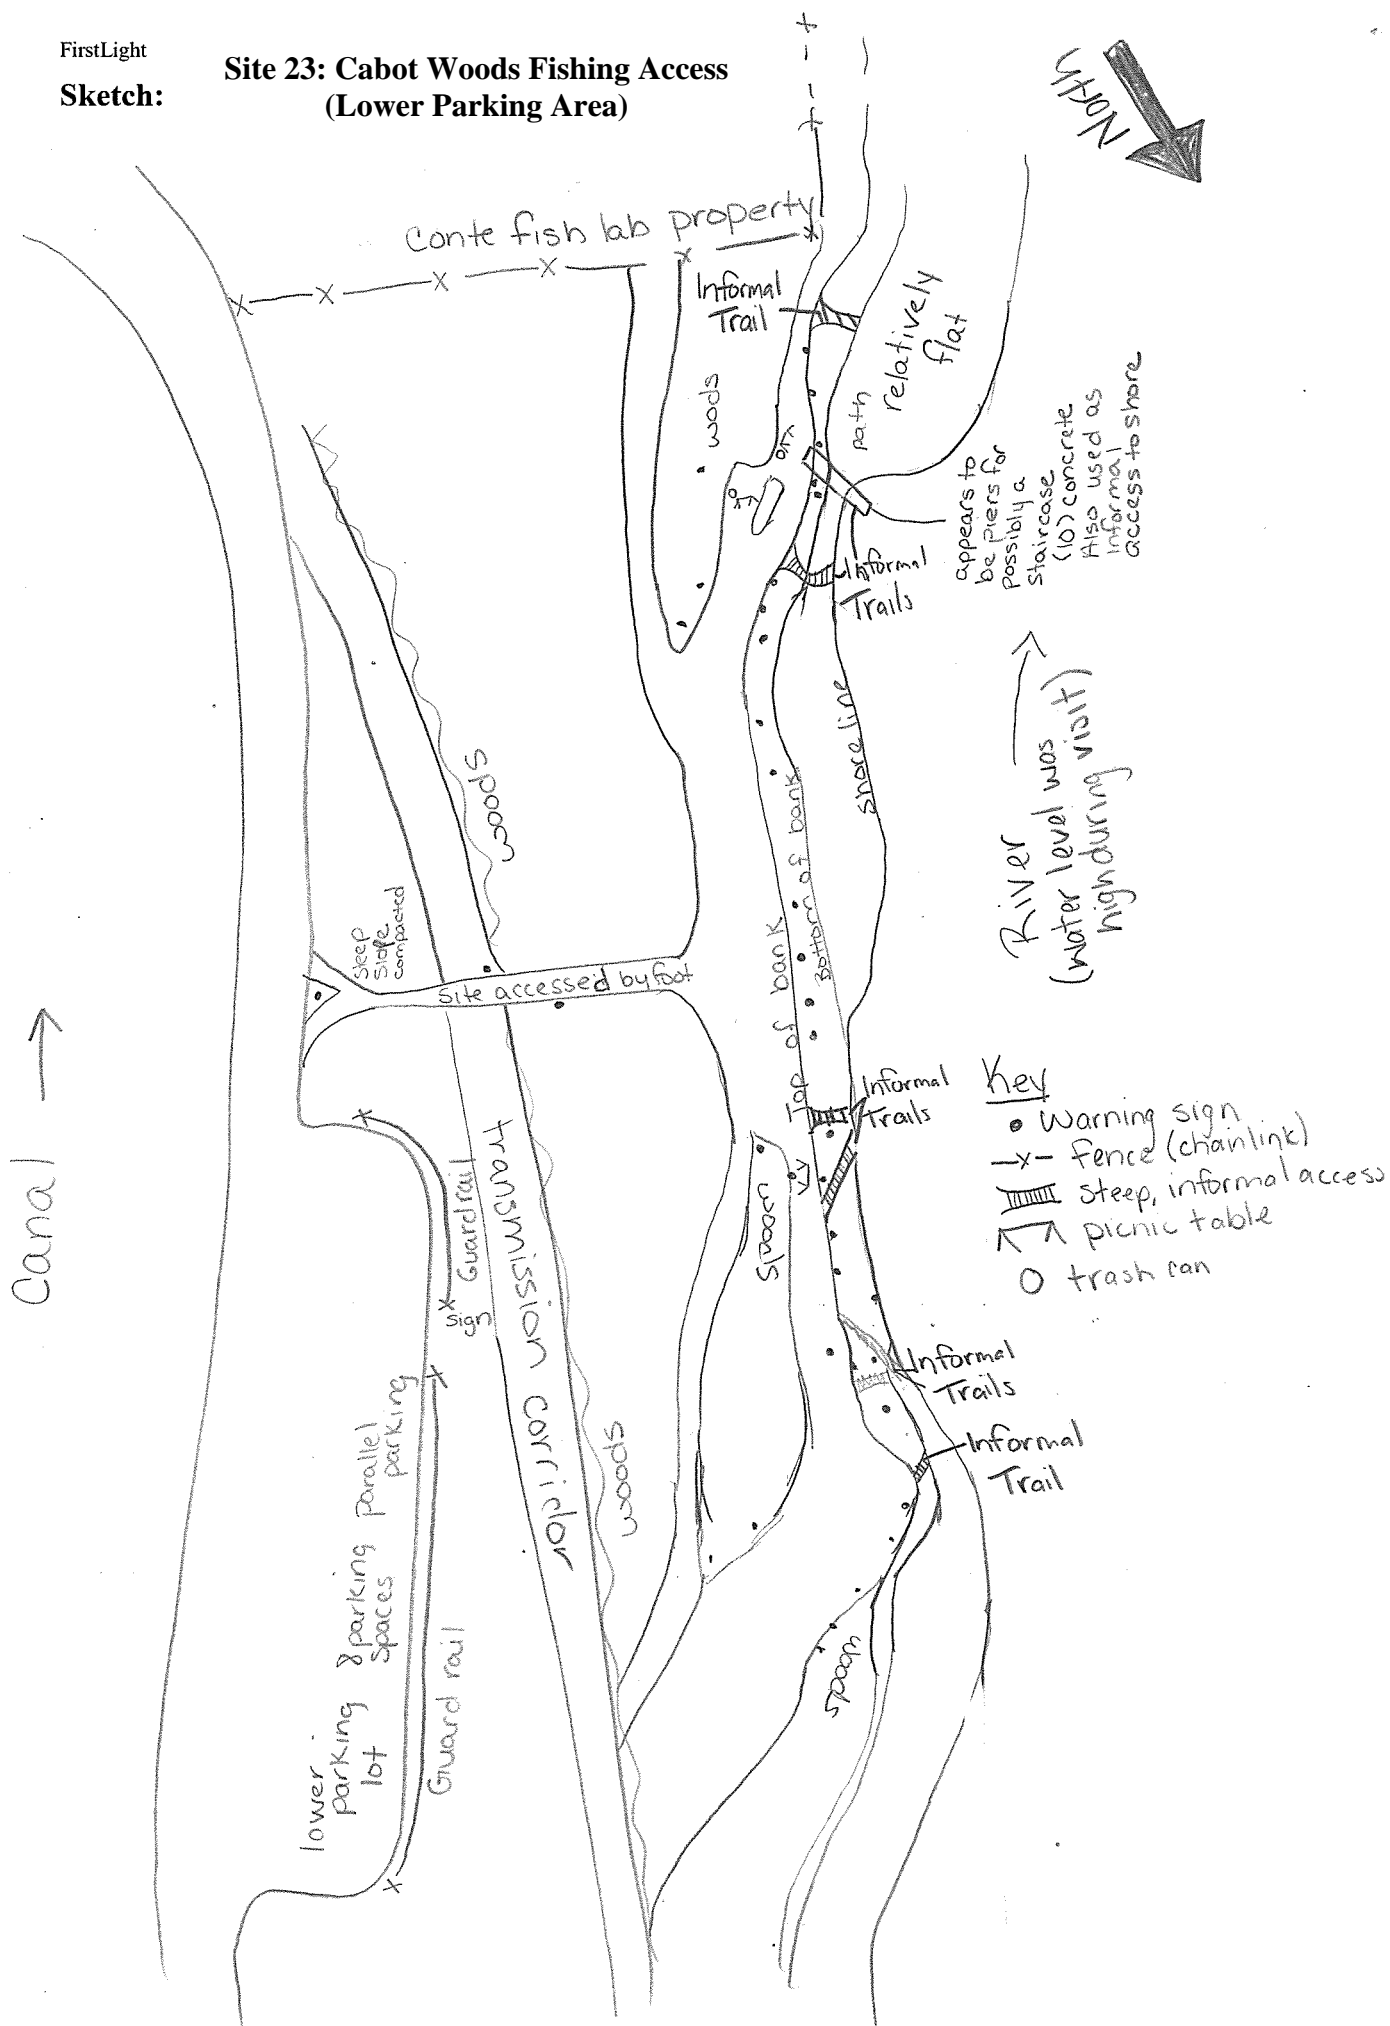 FirstLight
Sketch:
Site 23: Cabot Woods Fishing Access
(Lower Parking Area)
North
Conte fish lab property
Informal
Trail
relatively
flat
path
wods
appears to
be piers for
possibly a
staircase
(10) concrete
Also used as
informal
access to shore
Informal
Trails
shoreline
River
(water level was
high during visit)
woods
Bottom of bank
Top of bank
Steep
Slope
compacted
Site accessed by foot
Canal
Informal
Trails
Key
warning sign
-x- fence (chainlink)
steep, informal access
picnic table
trash can
woods
Guard rail
sign
transmission corridor
Informal
Trails
Informal
Trail
woods
lower
parking
lot
8 parking
spaces
parallel
parking
Guard rail
woods